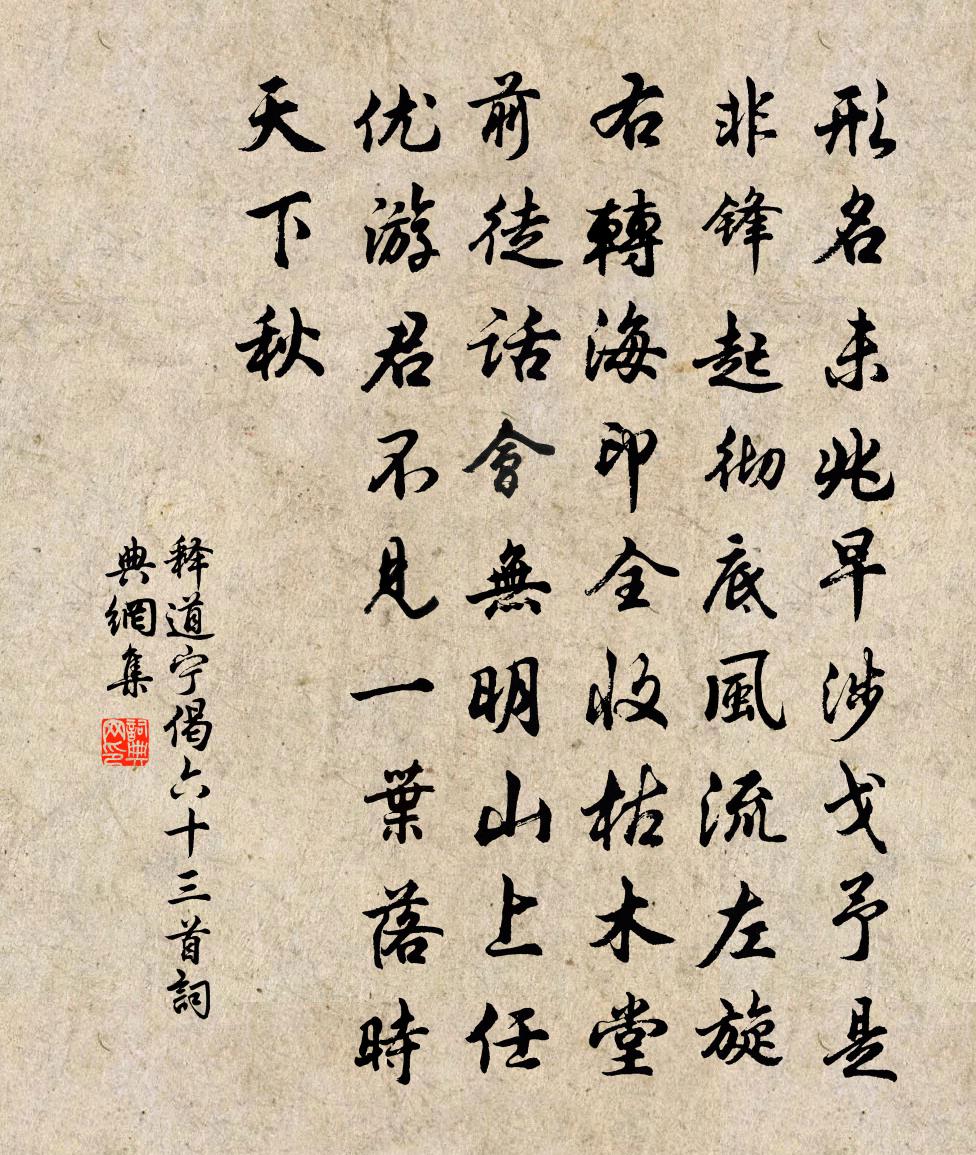 形名未兆早涉戈予是
非锋起彻底風流左旋
右轉海印全收枯木堂
前徒话會無明山上任
优游君不見一葉落時
天下秋
释道宁偈六十三首詞
典網集
詞典
网印